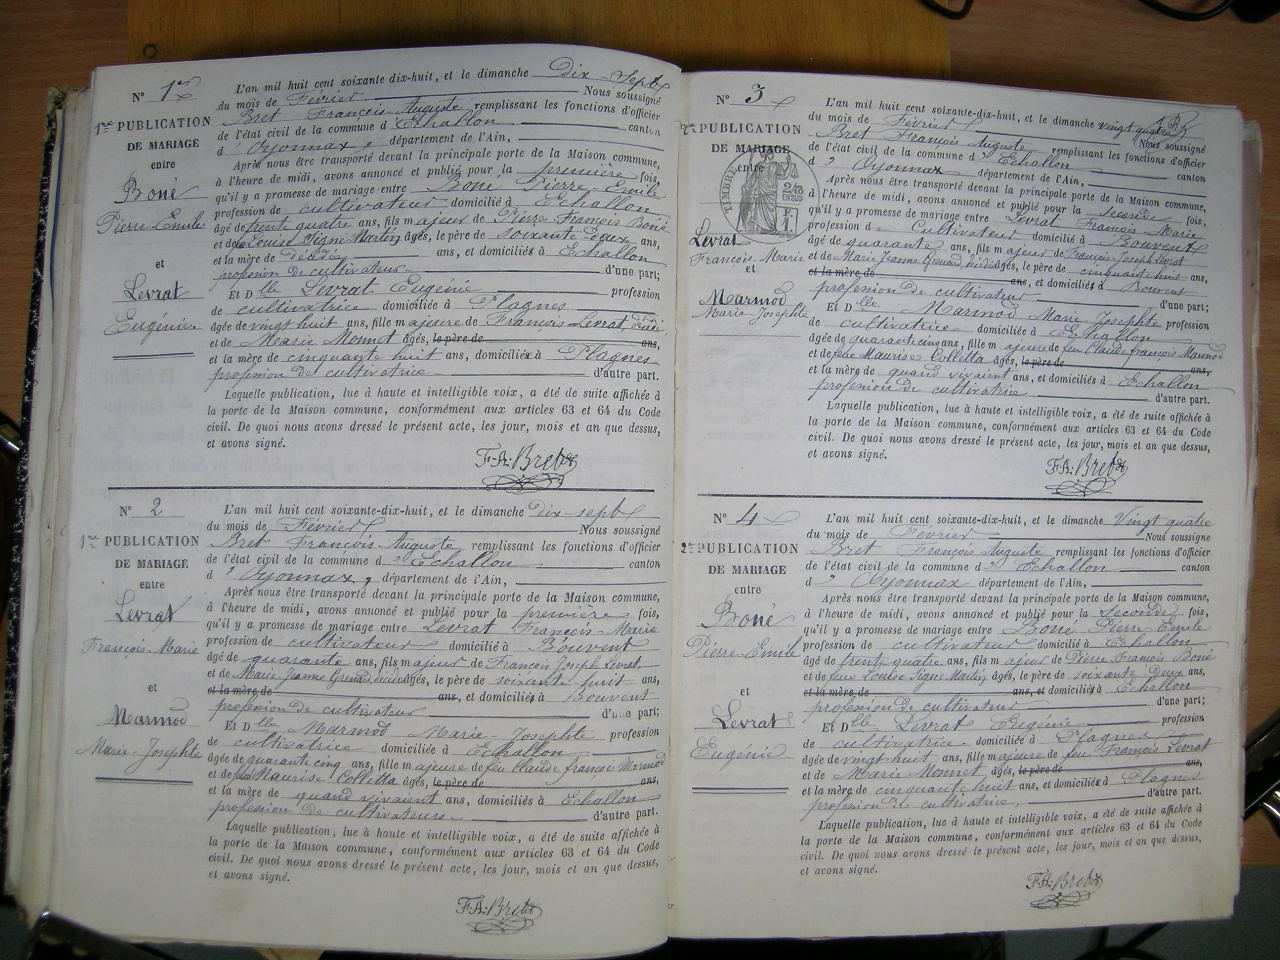 N° 1er
1re PUBLICATION
DE MARIAGE
entre
Boné
Pierre Emile
et
Levrat
Eugénie
L'an mil huit cent soixante-dix-huit, et le dimanche Dix-Sept
du mois de Février Nous soussigné
Bret François Auguste remplissant les fonctions d'officier
de l'état civil de la commune d'Echallon canton
d' Oyonnax, département de l'Ain,
Après nous être transporté devant la principale porte de la Maison commune,
à l'heure de midi, avons annoncé et publié pour la première fois,
qu'il y a promesse de mariage entre Boné Pierre-Emile
profession de cultivateur domicilié à Echallon
âgé de trente quatre ans, fils majeur de Pierre François Boné
et de Louise Signe Martin âgés, le père de soixante deux ans,
et la mère de ans, et domiciliés à Echallon
profession de cultivateur d'une part;
Et Dlle Levrat Eugénie profession
de cultivatrice domiciliée à Plagnes
âgée de vingt huit ans, fille majeure de François Levrat,
et de Marie Monnet âgés, le père de ans,
et la mère de cinquante huit ans, domiciliés à Plagnes
profession de cultivatrice d'autre part.
Laquelle publication, lue à haute et intelligible voix, a été de suite affichée à
la porte de la Maison commune, conformément aux articles 63 et 64 du Code
civil. De quoi nous avons dressé le présent acte, les jour, mois et an que dessus,
et avons signé.
F.A. Bret
N° 2
1re PUBLICATION
DE MARIAGE
entre
Levrat
François-Marie
et
Marmod
Marie-Josephte
L'an mil huit cent soixante-dix-huit, et le dimanche dix-sept
du mois de Février Nous soussigné
Bret François-Auguste remplissant les fonctions d'officier
de l'état civil de la commune d' Echallon canton
d' Oyonnax, département de l'Ain,
Après nous être transporté devant la principale porte de la Maison commune,
à l'heure de midi, avons annoncé et publié pour la première fois,
qu'il y a promesse de mariage entre Levrat François-Marie
profession de cultivateur domicilié à Bouvent
âgé de quarante ans, fils majeur de François Joseph Levrat
et de Marie Jeanne âgés, le père de soixante huit ans,
et la mère de ans, et domiciliés à Bouvent
profession de cultivateur d'une part;
Et Dlle Marmod Marie-Josephte profession
de cultivatrice domiciliée à Echallon
âgée de quarante cinq ans, fille majeure de feu Claude françois Marmod
et de feue Maurise Colletta âgés, le père de ans,
et la mère de quand vivaient ans, domiciliés à Echallon
profession de cultivateurs d'autre part.
Laquelle publication, lue à haute et intelligible voix, a été de suite affichée à
la porte de la Maison commune, conformément aux articles 63 et 64 du Code
civil. De quoi nous avons dressé le présent acte, les jour, mois et an que dessus,
et avons signé.
F.A. Bret
N° 3
2e PUBLICATION
DE MARIAGE
entre
Levrat
François Marie
et
Marmod
Marie Josephte
L'an mil huit cent soixante-dix-huit, et le dimanche vingt quatre
du mois de Février Nous soussigné
Bret François Auguste remplissant les fonctions d'officier
de l'état civil de la commune d' Echallon canton
d' Oyonnax département de l'Ain,
Après nous être transporté devant la principale porte de la Maison commune,
à l'heure de midi, avons annoncé et publié pour la seconde fois,
qu'il y a promesse de mariage entre Levrat François Marie
profession de Cultivateur domicilié à Bouvent
âgé de quarante ans, fils majeur de François Joseph Levrat
et de Marie Jeanne âgés, le père de cinquante huit ans,
et la mère de ans, et domiciliés à Bouvent
profession de cultivateur d'une part;
Et Dlle Marmod Marie Josephte profession
de cultivatrice domiciliée à Echallon
âgée de quarante cinq ans, fille majeure de feu Claude françois Marmod
et de feue Maurise Colletta âgés, le père de ans,
et la mère de quand vivaient ans, et domiciliés à Echallon
profession de cultivatrice d'autre part.
Laquelle publication, lue à haute et intelligible voix, a été de suite affichée à
la porte de la Maison commune, conformément aux articles 63 et 64 du Code
civil. De quoi nous avons dressé le présent acte, les jour, mois et an que dessus,
et avons signé.
F.A. Bret
N° 4
2e PUBLICATION
DE MARIAGE
entre
Boné
Pierre Emile
et
Levrat
Eugénie
L'an mil huit cent soixante-dix-huit, et le dimanche Vingt quatre
du mois de Février Nous soussigné
Bret François Auguste remplissant les fonctions d'officier
de l'état civil de la commune d' Echallon canton
d' Oyonnax département de l'Ain,
Après nous être transporté devant la principale porte de la Maison commune,
à l'heure de midi, avons annoncé et publié pour la Seconde fois,
qu'il y a promesse de mariage entre Boné Pierre Emile
profession de cultivateur domicilié à Echallon
âgé de trente quatre ans, fils majeur de Pierre François Boné
et de feue Louise Signe Martin âgés, le père de soixante Deux ans,
et la mère de ans, et domiciliés à Echallon
profession de cultivateur d'une part;
Et Dlle Levrat Eugénie profession
de cultivatrice domiciliée à Plagnes
âgée de vingt huit ans, fille majeure de feu François Levrat
et de Marie Monnet âgés, le père de ans,
et la mère de cinquante huit ans, et domiciliés à Plagnes
profession de cultivatrice, d'autre part.
Laquelle publication, lue à haute et intelligible voix, a été de suite affichée à
la porte de la Maison commune, conformément aux articles 63 et 64 du Code
civil. De quoi nous avons dressé le présent acte, les jour, mois et an que dessus,
et avons signé.
F.A. Bret